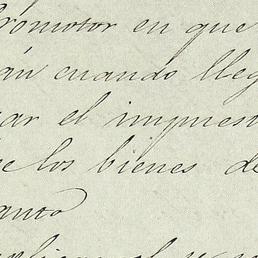 Promotor en que
án cuando lleg
ar el impuest
e los bienes de
anto